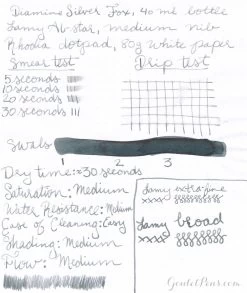 Diamine Silver Fox, 40 ml bottle
Lamy Al-star, medium nib
Rhodia dotpad, 80g white paper
Smear test
Drip test
5 seconds
10 seconds
20 seconds
30 seconds
Swab:
1 2 3
Dry time: ≈30 seconds
Saturation: Medium
Water Resistance: Medium
Ease of Cleaning: Easy
Shading: Medium
Flow: Medium
Lamy extra-fine
xxxx
Lamy broad
xxxx
GouletPens.com